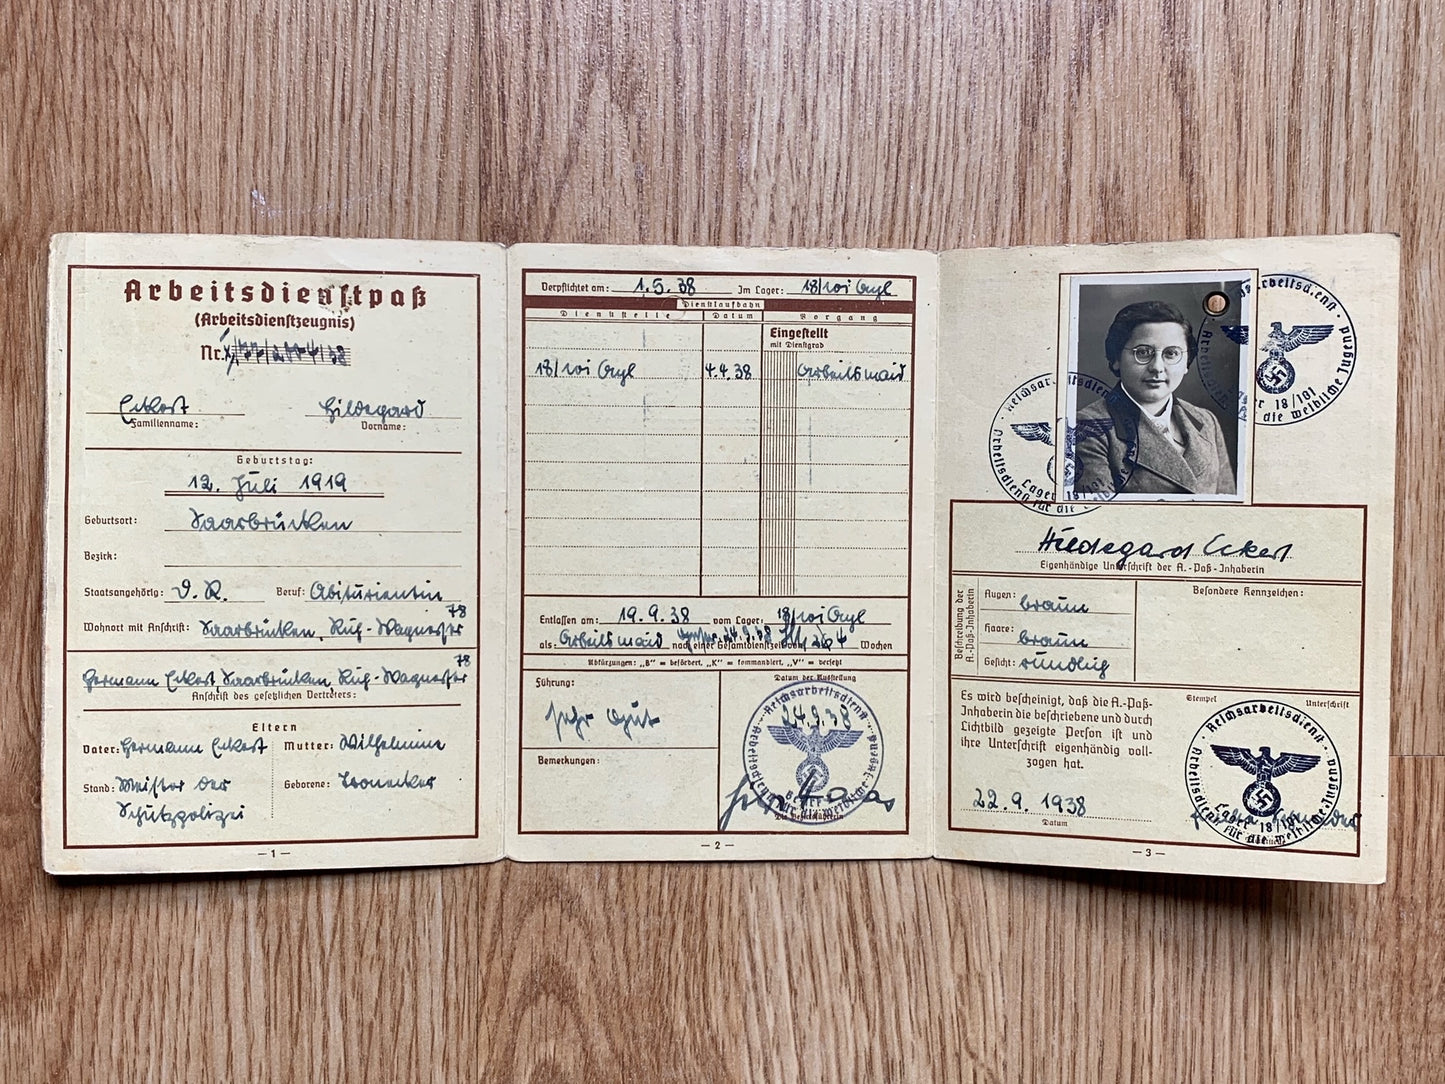 Arbeitsdienstpaß
(Arbeitsdienstzeugnis)
Nr.
Eckert Hildegard
Familienname: Vorname:
Geburtstag:
12. Juli 1919
Geburtsort: Saarbrücken
Bezirk:
Staatsangehörig: D. R. Beruf: Abiturientin
Wohnort mit Anschrift: Saarbrücken, 78
Hermann Eckert, Saarbrücken 78
Anschrift des gesetzlichen Vertreters:
Eltern
Vater: Hermann Eckert Mutter: Wilhelmine
Stand: Meister der Geborene:
Schutzpolizei
— 1 —
Verpflichtet am: 1.5.38 Im Lager: 18/101
Dienstlaufbahn
Dienststelle Datum Vorgang
Eingestellt
mit Dienstgrad
18/101 4.4.38 Arbeitsmaid
Entlassen am: 19.9.38 vom Lager: 18/101
als: Arbeitsmaid nach einer Gesamtdienstzeit von Wochen
Abkürzungen: „B" = befördert, „K" = kommandiert, „V" = versetzt
Führung:
sehr gut
Bemerkungen:
Datum der Ausstellung
24.9.38
Reichsarbeitsdienst
Arbeitsdienst für die weibliche Jugend
Bezirk
Die Bezirksführerin
— 2 —
Reichsarbeitsdienst
Arbeitsdienst für die weibliche Jugend
Lager 18/101
Reichsarbeitsdienst
Arbeitsdienst für die weibliche Jugend
Lager 18/101
Hildegard Eckert
Eigenhändige Unterschrift der A.-Paß-Inhaberin
Beschreibung der A.-Paß-Inhaberin
Augen: braun
Haare: braun
Gesicht: rundlich
Besondere Kennzeichen:
Es wird bescheinigt, daß die A.-Paß-
Inhaberin die beschriebene und durch
Lichtbild gezeigte Person ist und
ihre Unterschrift eigenhändig voll-
zogen hat.
22.9.1938
Datum
Stempel Unterschrift
Reichsarbeitsdienst
Arbeitsdienst für die weibliche Jugend
Lager 18/101
— 3 —